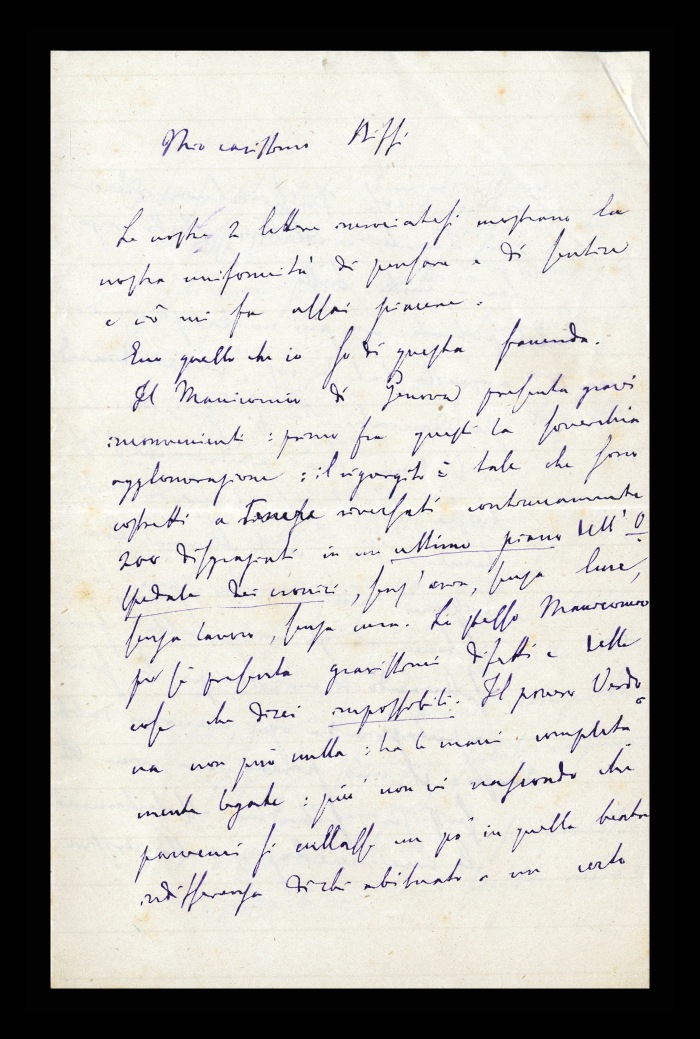 Mio carissimo Biffi
Le nostre 2 lettere incrociatesi mostrano la
nostra uniformità di pensare e di sentire
e ciò mi fa assai piacere.
Ecco quello che io so di questa faccenda.
Il Manicomio di Genova presenta gravi
inconvenienti: primo fra questi la soverchia
agglomerazione: il rigurgito è tale che sono
costretti a riversati continuamente
200 disgraziati in un ultimo piano dell'O
spedale dei cronici, senz'aria, senza luce,
senza lavoro, senza cura. Lo stesso Manicomio
per sé presenta gravissimi difetti e delle
cose che direi impossibili. Il povero Verdo
na non può nulla: ha le mani completa
mente legate: più non vi nascondo che
parvemi si cullasse un po' in quella beata
indifferenza di chi abituato a un certo